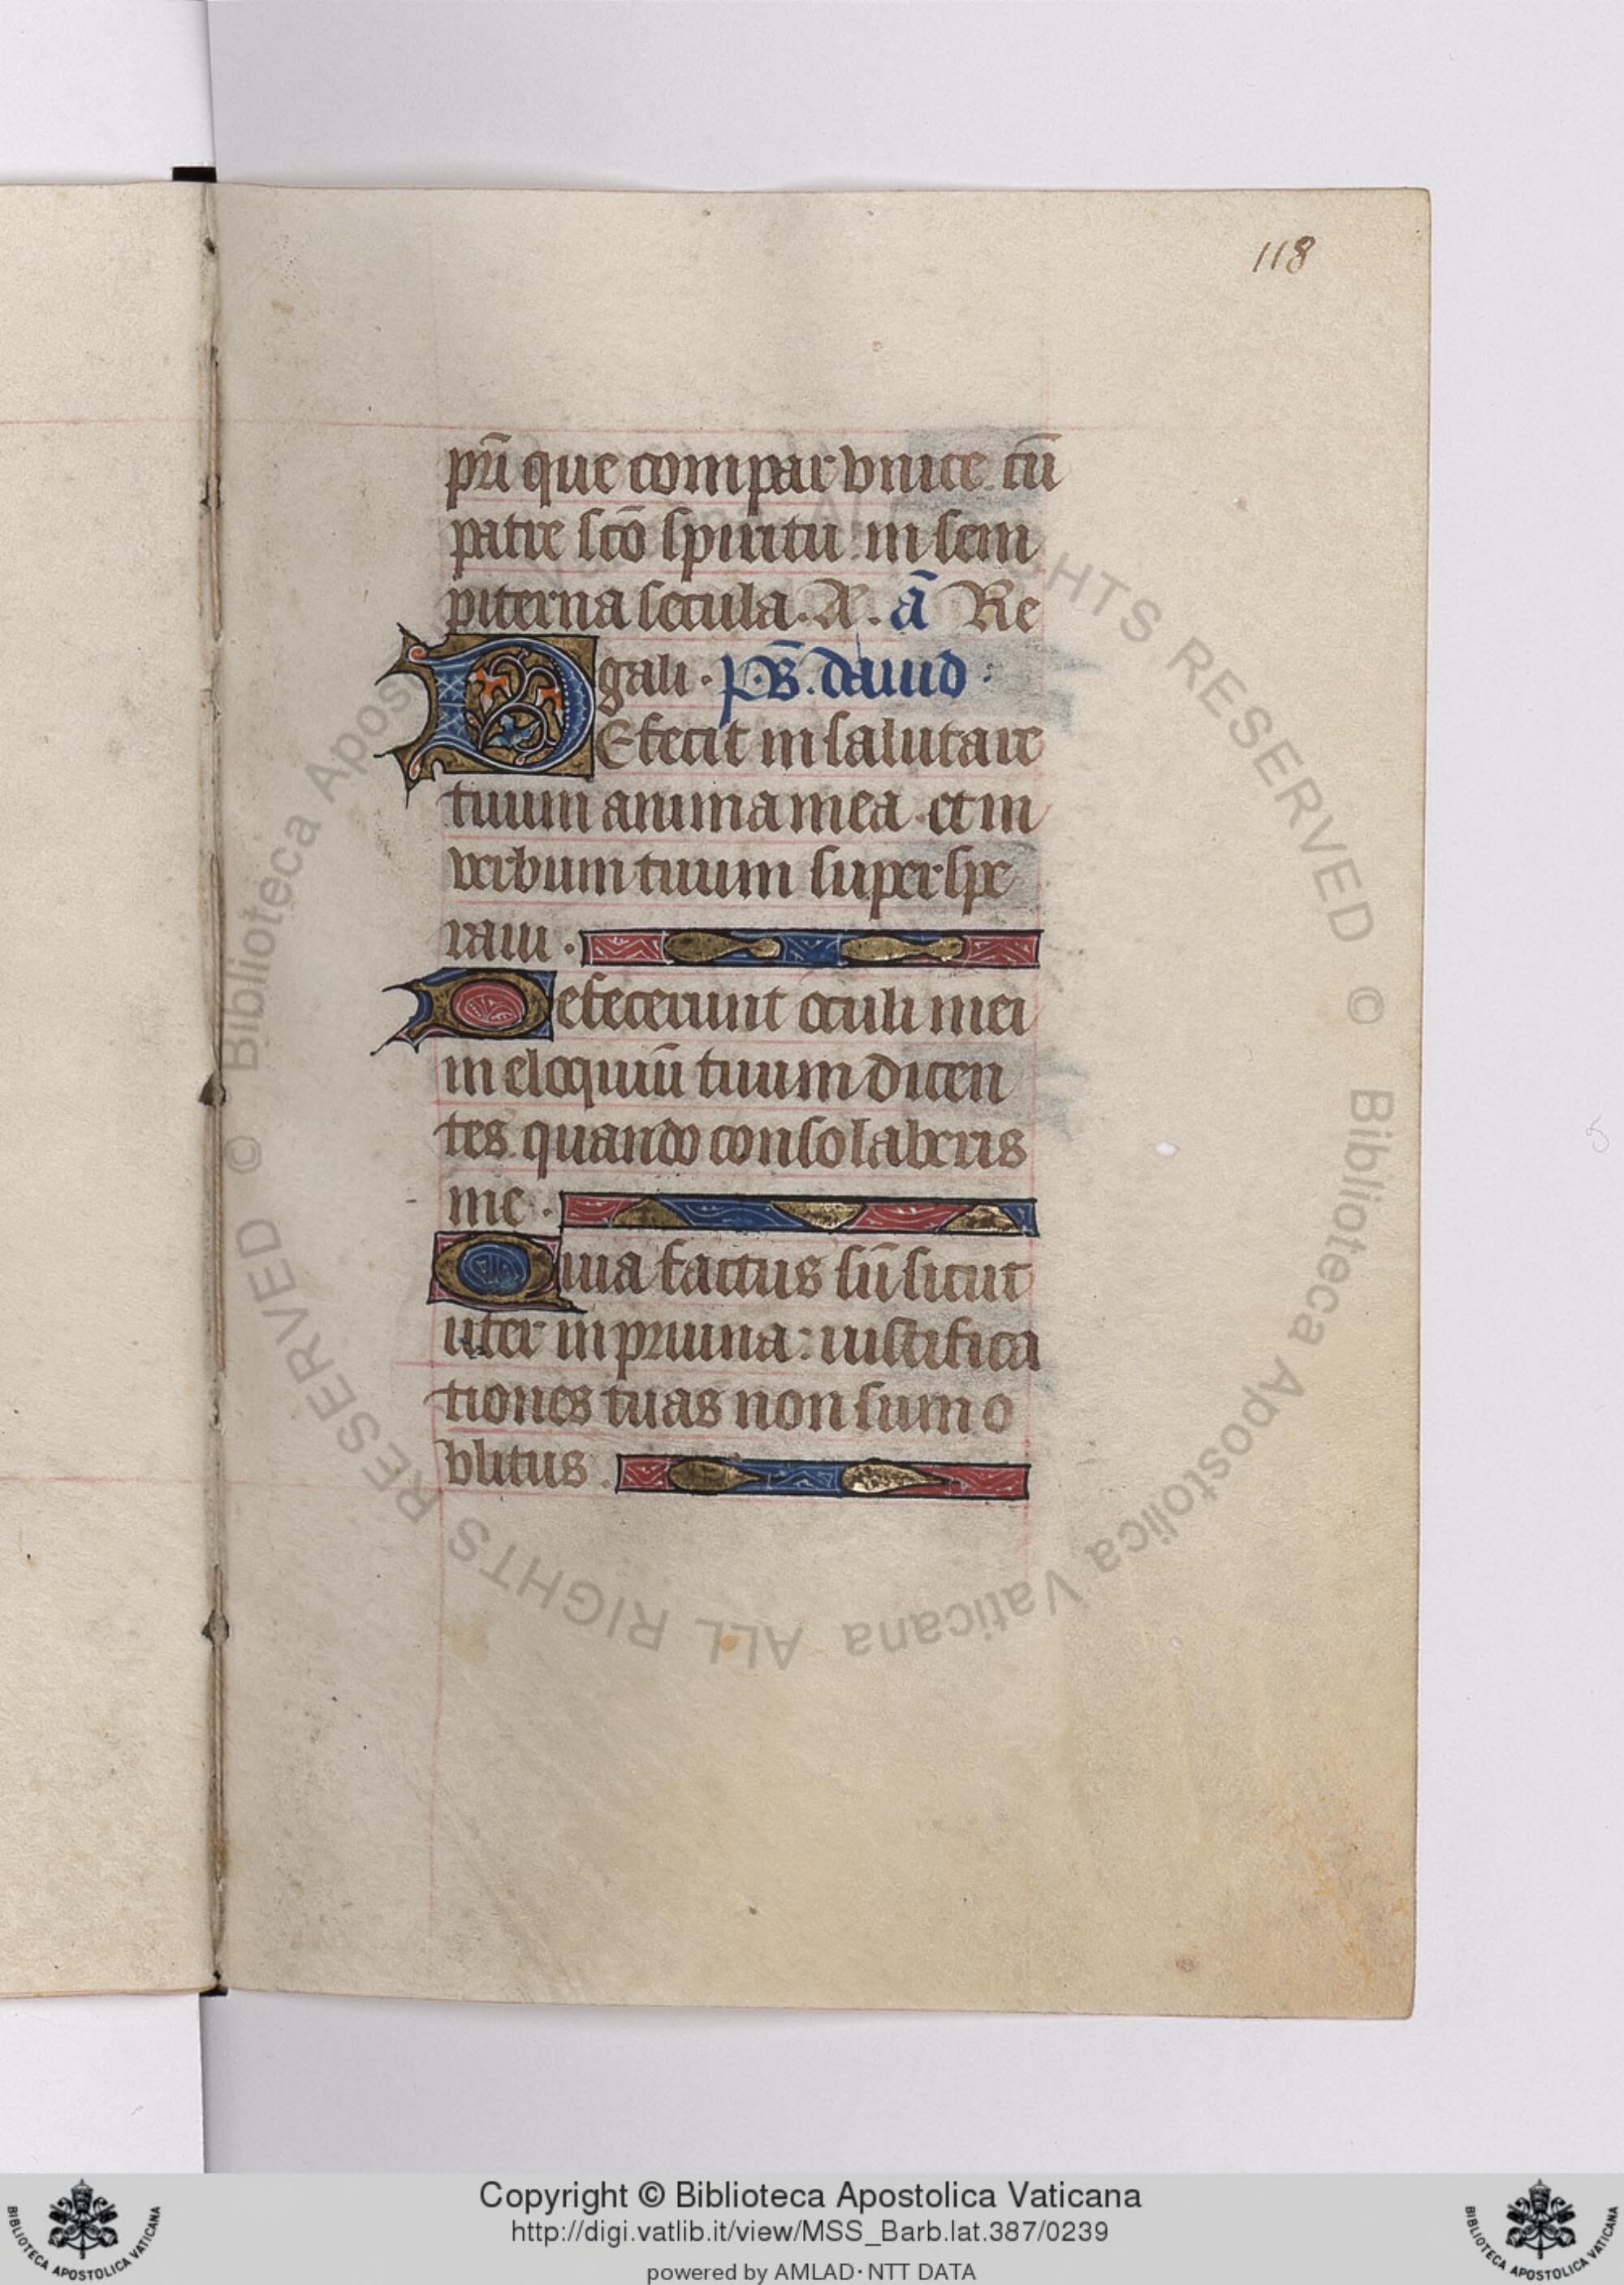 118
pr̄i que compar vnice. cū
patre sc̄o spiritu. in sem
piterna secula. A. ā Re
gali. ps̄. dauid.
DEfecit in salutare
tuum anima mea. et in
verbum tuum superspe
raui.
Defecerunt oculi mei
in eloquiū tuum dicen
tes. quando consolaberis
me.
Quia factus sū sicut
uter in pruina: iustifica
tiones tuas non sum o
blitus.
© Biblioteca Apostolica Vaticana ALL RIGHTS RESERVED © Biblioteca Apostolica Vaticana ALL RIGHTS RESERVED
Copyright © Biblioteca Apostolica Vaticana
http://digi.vatlib.it/view/MSS_Barb.lat.387/0239
powered by AMLAD·NTT DATA
BIBLIOTECA APOSTOLICA VATICANA
BIBLIOTECA APOSTOLICA VATICANA